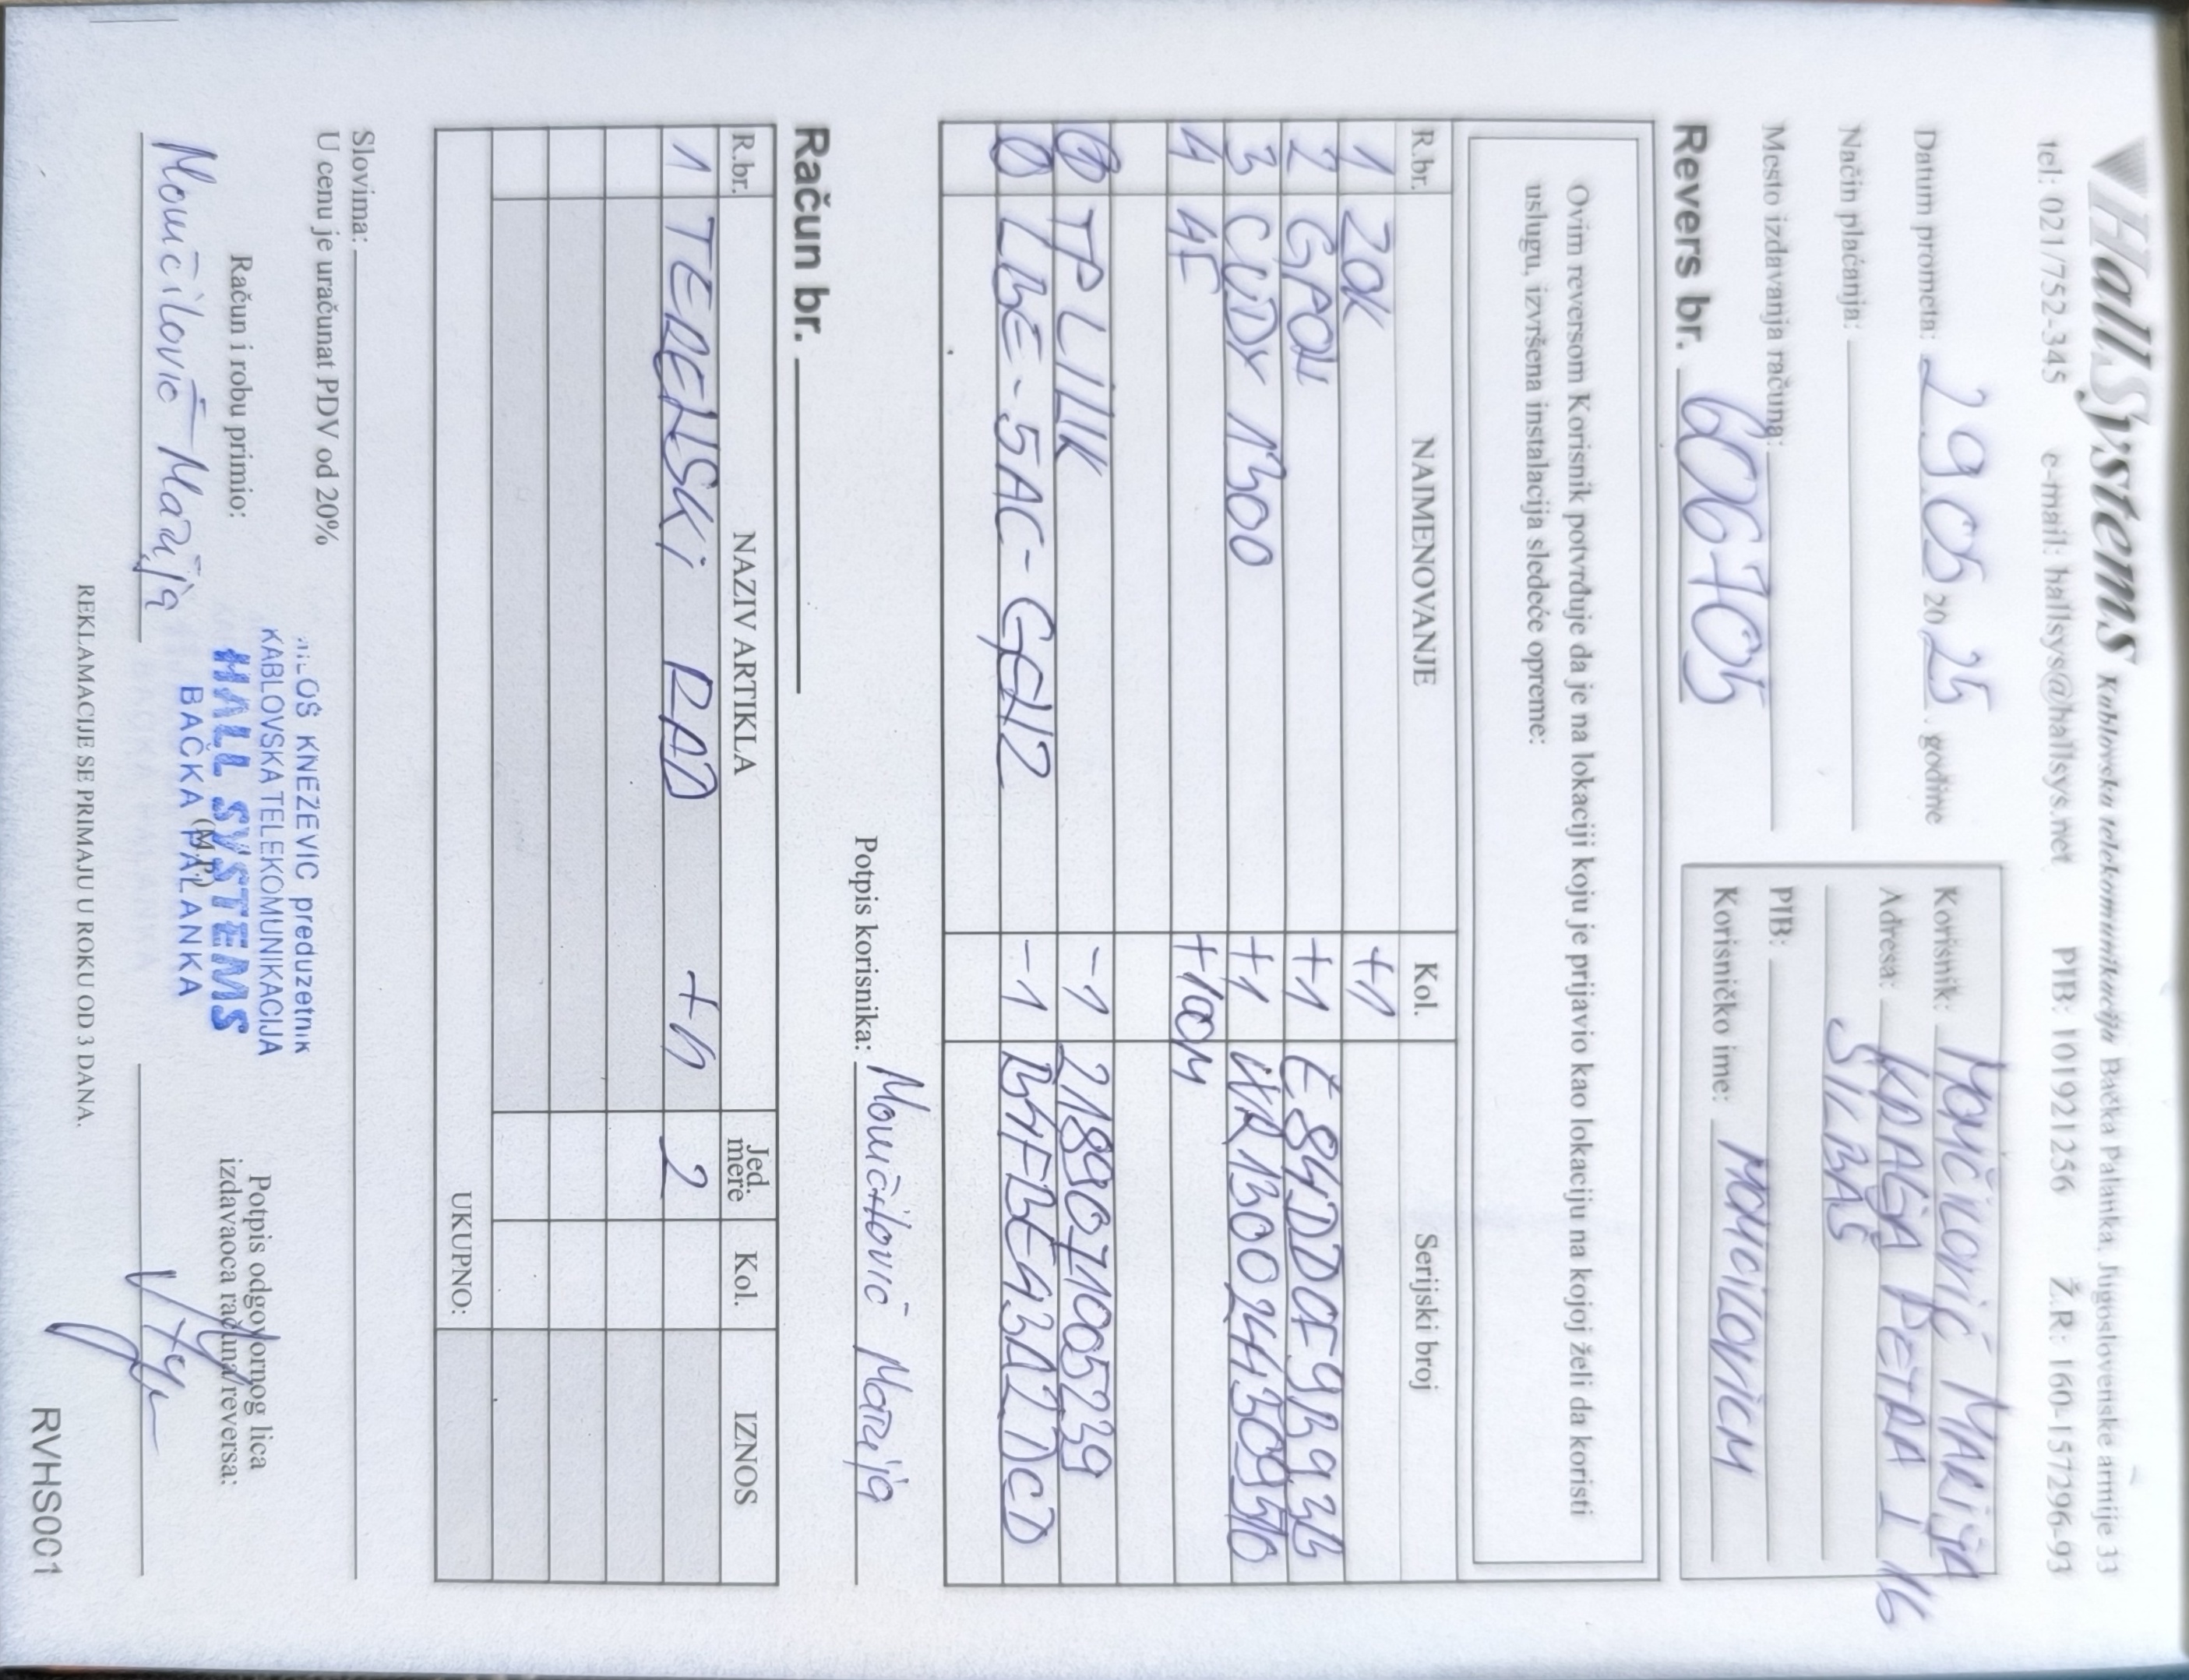 HallSystems Kablovska telekomunikacija Bačka Palanka, Jugoslovenske armije 33
tel: 021/752-345 e-mail: hallsys@hallsys.net PIB: 101921256 Ž.R: 160-157296-93
Datum prometa: 29.05 20 25 . godine
Način plaćanja:
Mesto izdavanja računa:
Revers br. 606705
Korisnik: MOMČILOVIĆ MARIJA
Adresa: KRALJA PETRA I 16
SILBAŠ
PIB:
Korisničko ime: MOMCILOVICM
Ovim reversom Korisnik potvrđuje da je na lokaciji koju je prijavio kao lokaciju na kojoj želi da koristi
uslugu, izvršena instalacija sledeće opreme:
R.br. NAIMENOVANJE Kol. Serijski broj
1 ZOK +1
2 GPON +1
3 CUDY 1300 +1
4 4F +100M
TP LINK -1 2189071005239
LBE-5AC-GEN2 -1
Potpis korisnika: Momčilović Marija
Račun br.
R.br. NAZIV ARTIKLA Jed. mere Kol. IZNOS
1 TERENSKI RAD +h 2
UKUPNO:
Slovima:
U cenu je uračunat PDV od 20%
Račun i robu primio:
Momčilović Marija
MILOŠ KNEŽEVIĆ preduzetnik
KABLOVSKA TELEKOMUNIKACIJA
HALL SYSTEMS
BAČKA PALANKA
(M.P.)
Potpis odgovornog lica
izdavaoca računa/reversa:
REKLAMACIJE SE PRIMAJU U ROKU OD 3 DANA.
RVHS001